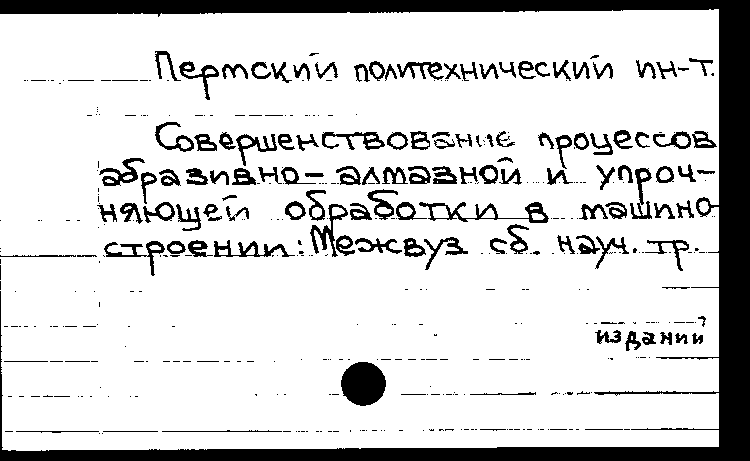 Пермский политехнический ин-т.
Совершенствование процессов
абразивно-алмазной и упроч-
няющей обработки в машино
строении: Межвуз сб. науч. тр.
изданий